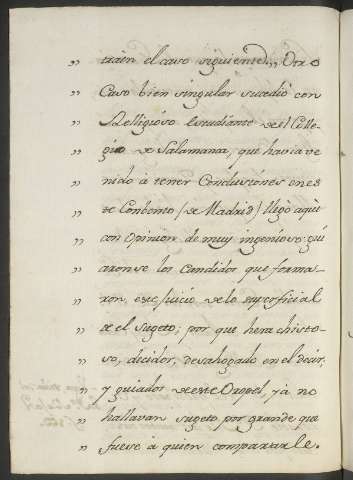 „ train el caso siguiente„ Otro
„ Caso bien singular sucediò con
„ Relligioso Estudiante de el Colle-
„ gio de Salamanca, que havia ve
„ nido à tener Conclusiones en es
„ te Conbento (de Madrid) llegò aqùi
„ con opinion de muy ingenioso: gui
„ aronse los Candidos que forma-
„ ron este Juicio de lo superficial
„ de el Sugeto; por que hera chisto-
„ so, dicidor, desahogado en el decir
„ y guiados de este Oropel, yà no
„ hallavan sugeto por grande que
„ fuese à quien compararle.